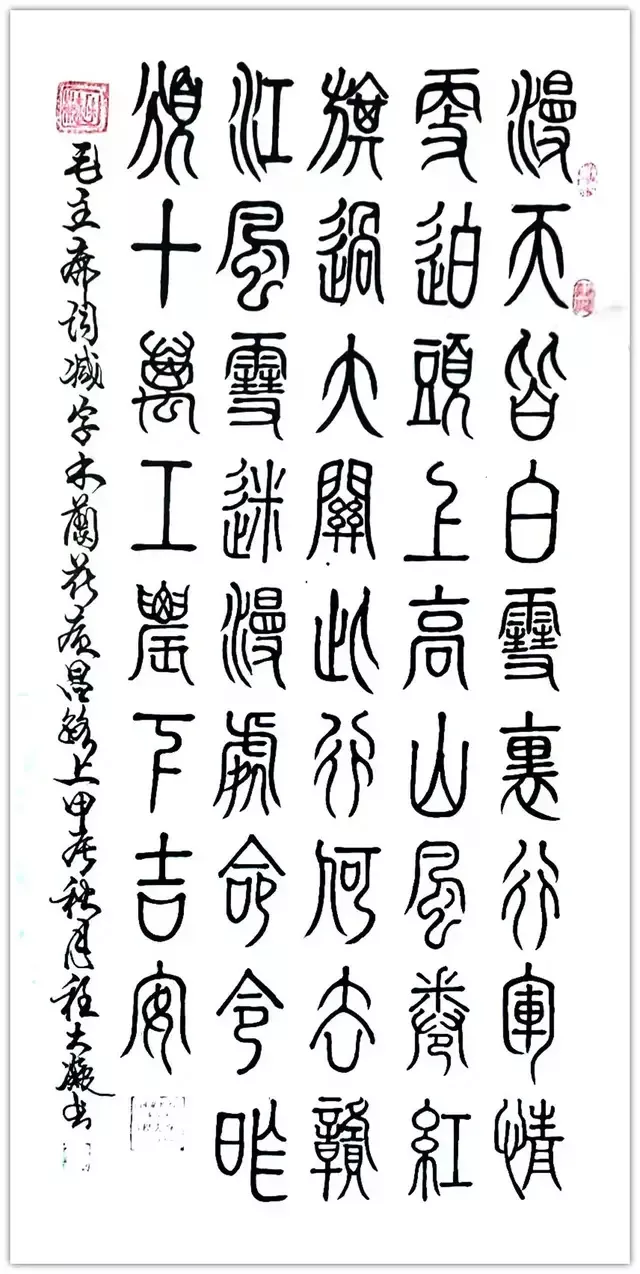 漫天皆白雪裏行軍情
更迫頭上高山風卷紅
旗過大關此行何去贛
江風雪迷漫處命令昨
頒十萬工農下吉安
毛主席詞减字木蘭花廣昌路上甲辰秋月程大書